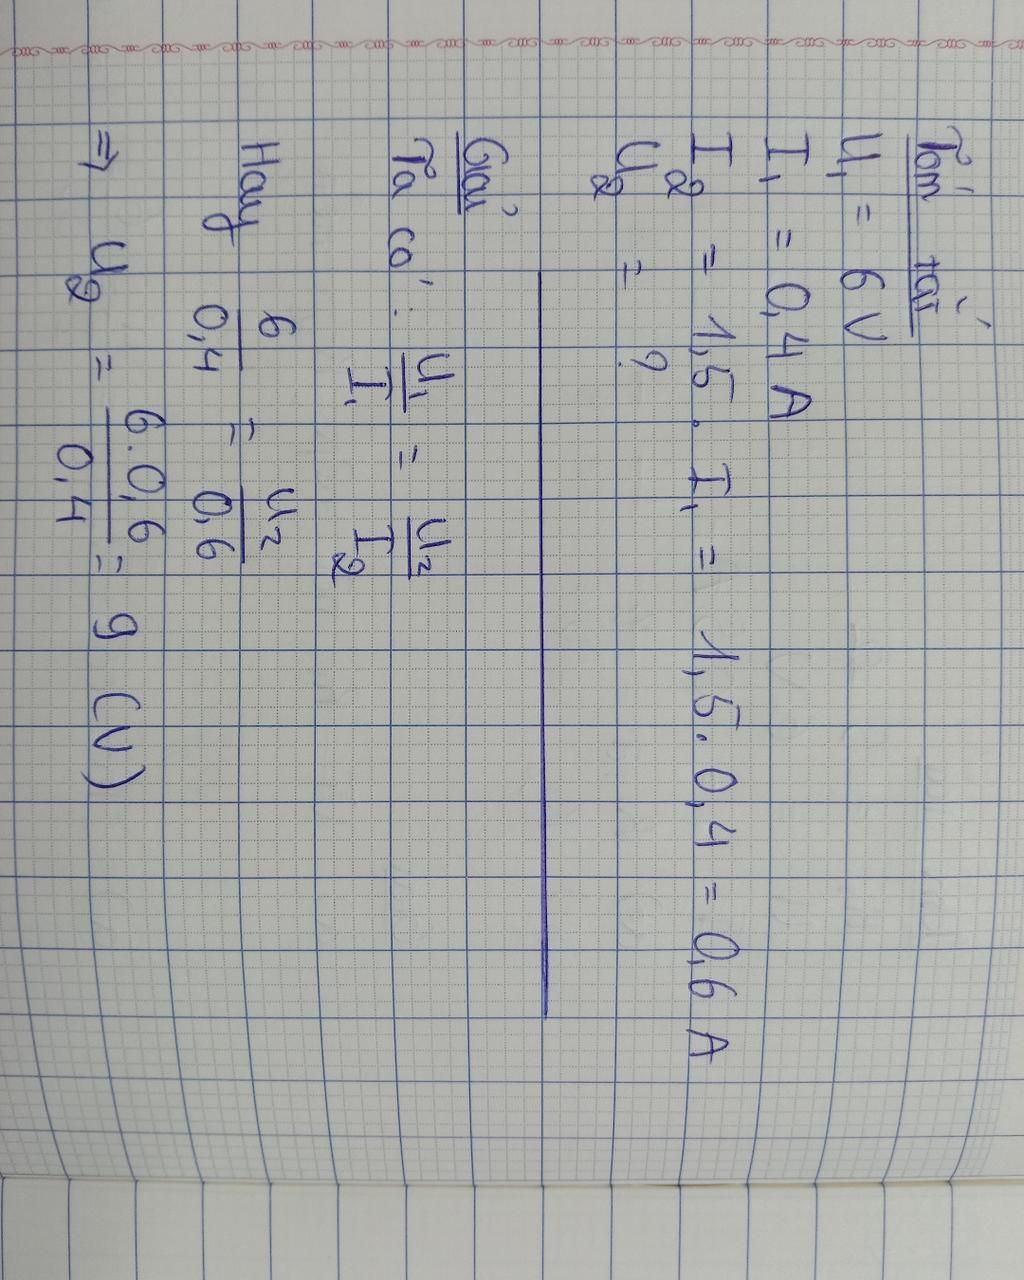 Tóm tắt
U₁ = 6V
I₁ = 0,4 A
I₂ = 1,5 . I₁ = 1,5. 0,4 = 0,6 A
U₂ = ?
Giải
Ta có : U₁/I₁ = U₂/I₂
Hay 6/0,4 = U₂/0,6
⇒ U₂ = 6.0,6/0,4 = 9 (V)